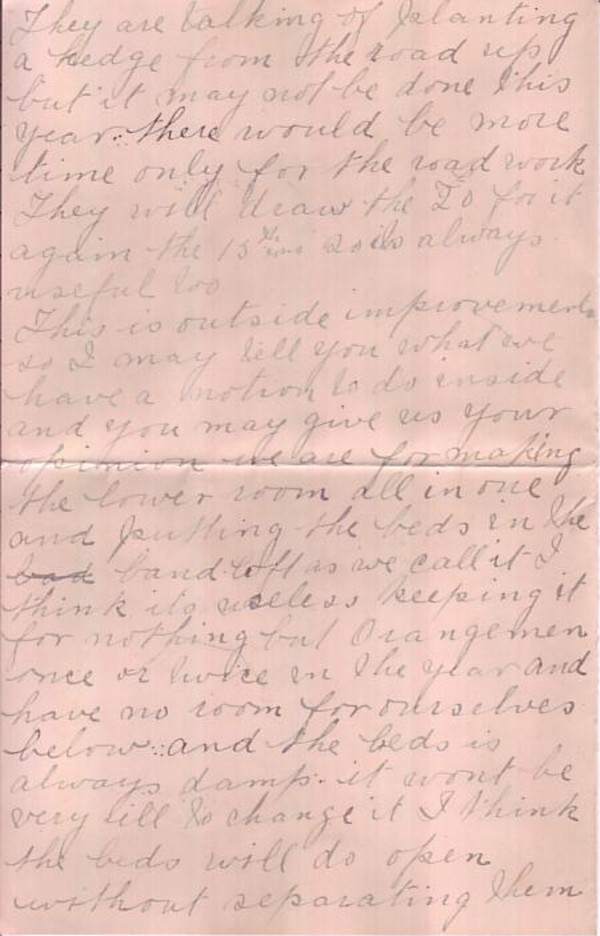 They are talking of planting
a hedge from the road up
but it may not be done this
year. there would be more
time only for the road work
They will draw the for it
again the 15 its always
useful too
This is outside improvements
so I may tell you what we
have a notion to do inside
and you may give us your
opinion we are for making
the lower room all in one
and putting the beds in the
bad band loft as we call it I
think its useless keeping it
for nothing but Orangemen
once or twice in the year and
have no room for ourselves
below. and the beds is
always damp. it wont be
very ill to change it I think
the beds will do open
without separating them